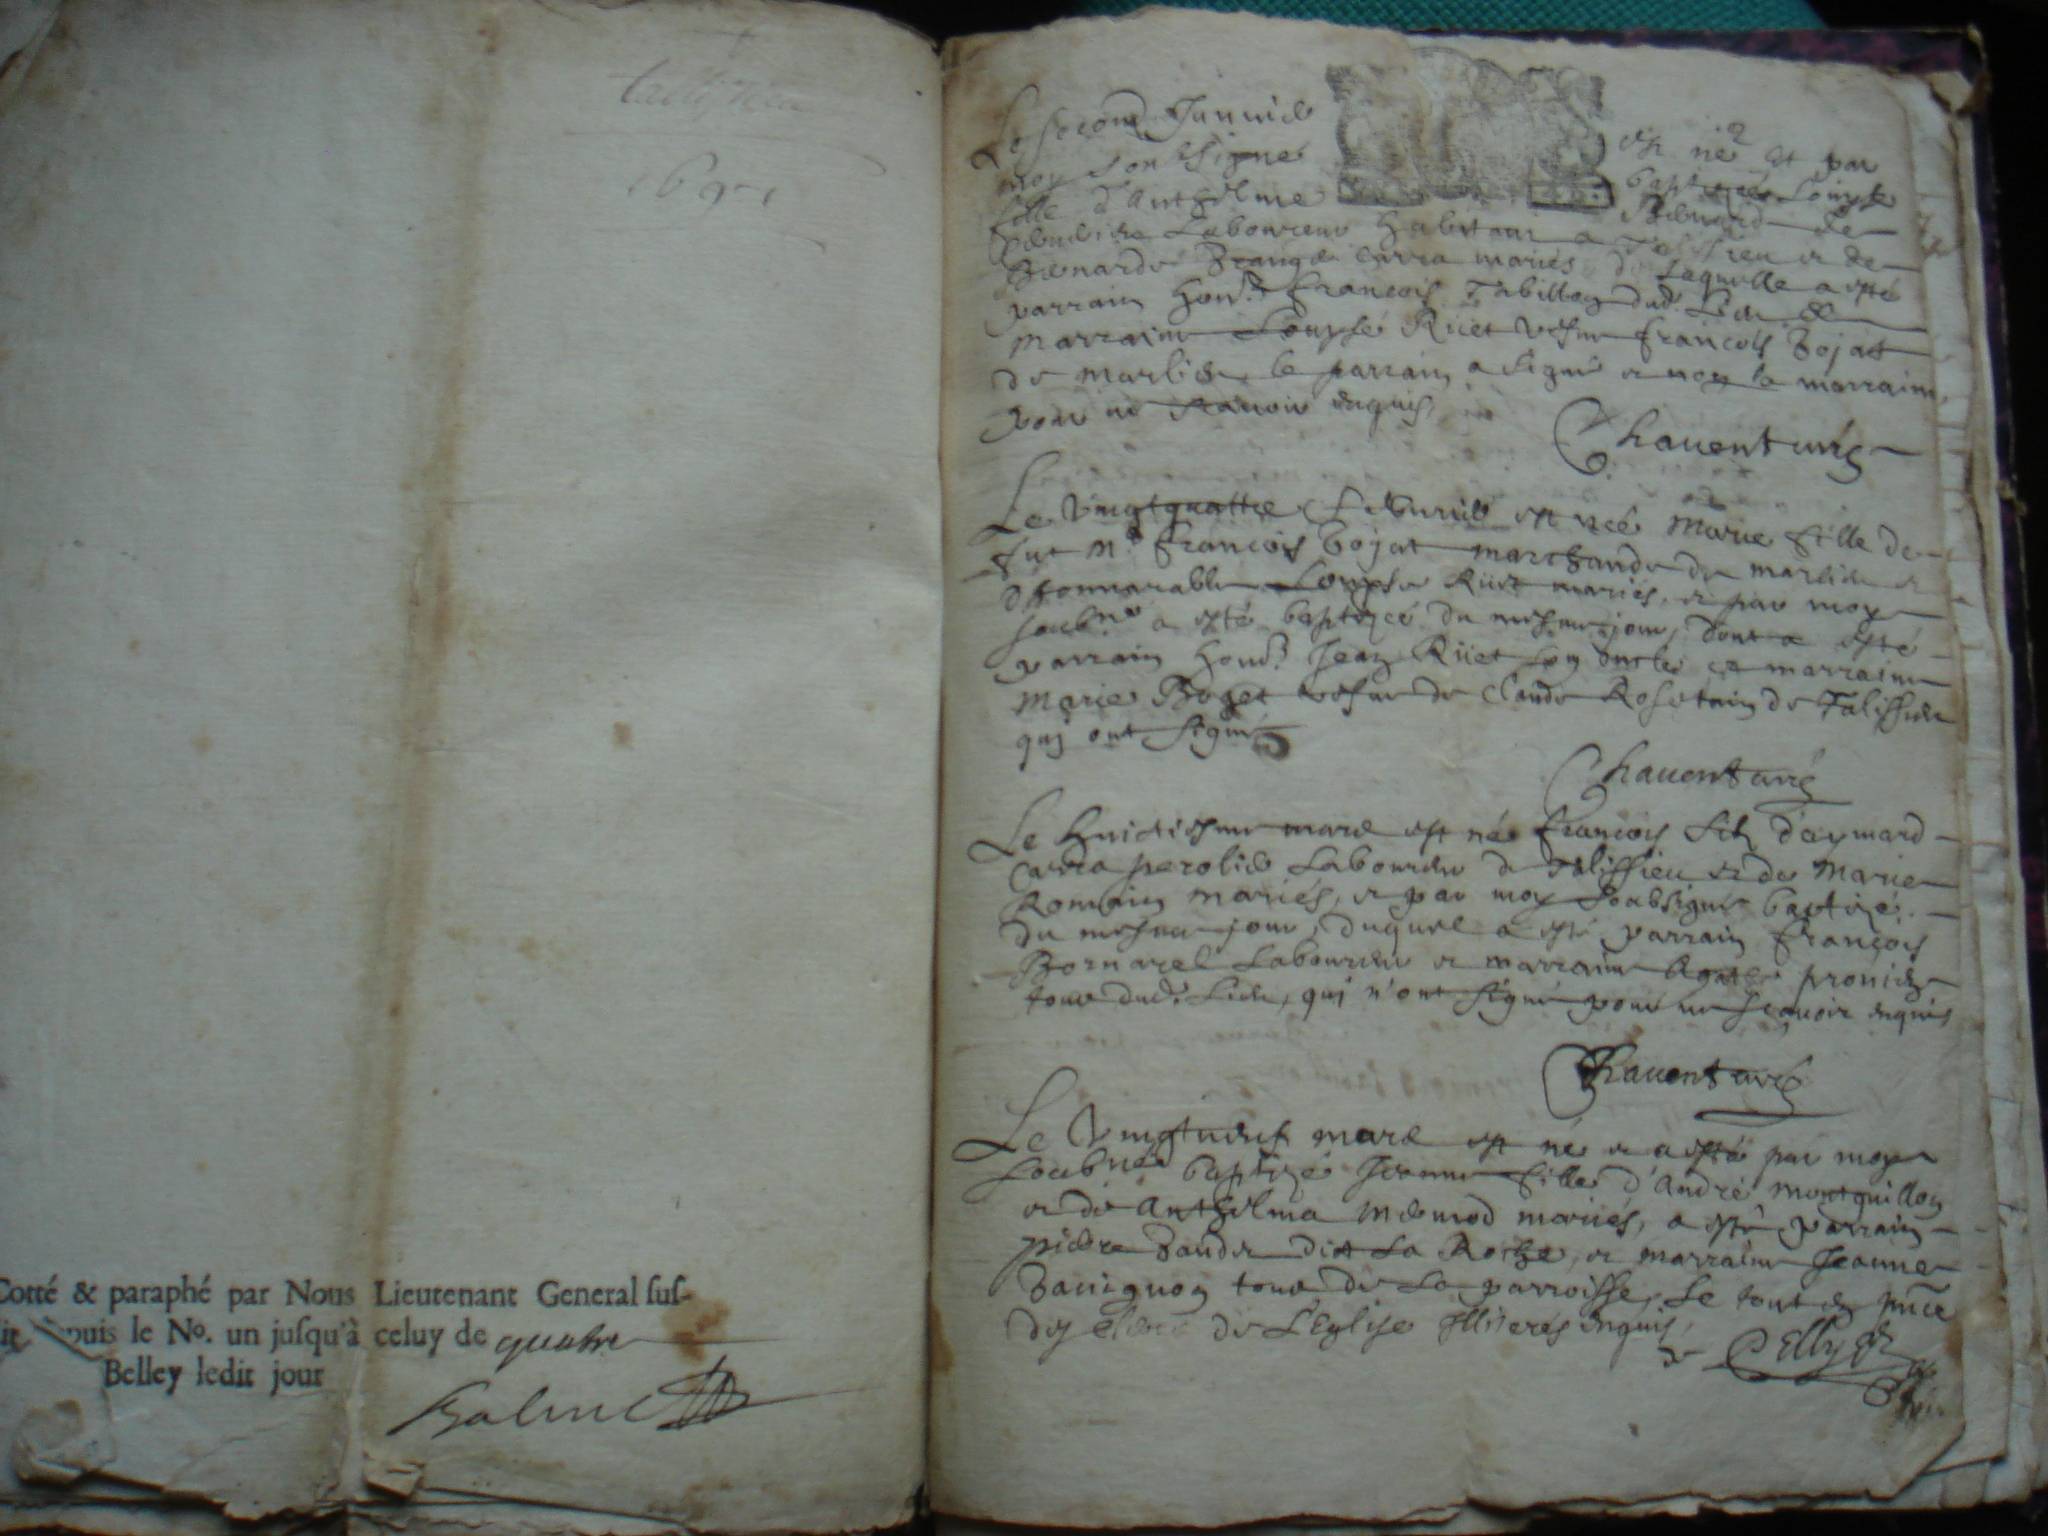 Cotté & paraphé par Nous Lieutenant General sus-
puis le No. un jusqu'à celuy de quatre
Belley ledit jour
Le second Januier est née et par
moy soubsigné baptizée Louyse
fille d'Anthelme
Laboureur habitant a Talissieu et de
Benarde Carra mariés de Laquelle a esté
parrain hon.^e François dud. Lieu &
marraine Louyse Riiet vefue François Bojat
de Marlieu, le parrain a signé et non la marraine
pour ne sçauoir enquis
Chauenturié
Le vingtquattre feburier est née Marie fille de
fut M.^e François Bojat marchand de Marlieu et
d'honnorable Louyse Riiet mariés, et par moy
soubné a esté baptizée du mesme jour, dont a esté
parrain hon.^e Jean Riiet son oncle et marraine
Marie Boget vefue de Claude Rosetain de Talissieu
qui ont signé
Chauenturié
Le huictiesme mars est né François filz d'Aymard
Carra perolier Laboureur de Talissieu et de Marie
Romain mariés, et par moy soubsigné baptizé
du mesme jour, duquel a esté parrain François
Bornarel Laboureur et marraine Agathe
tous dud. Lieu, qui n'ont signé pour ne sçauoir enquis
Chauenturié
Le vingtneuf mars est né et a esté par moy
soubné baptizé Jeanne fille d'André Montguillon
et de Anthelma mariés, a esté parrain
pierre dit La Roche, et marraine Jeanne
tous de La parroisse, Le tout en pnce
de L'Eglise enquis